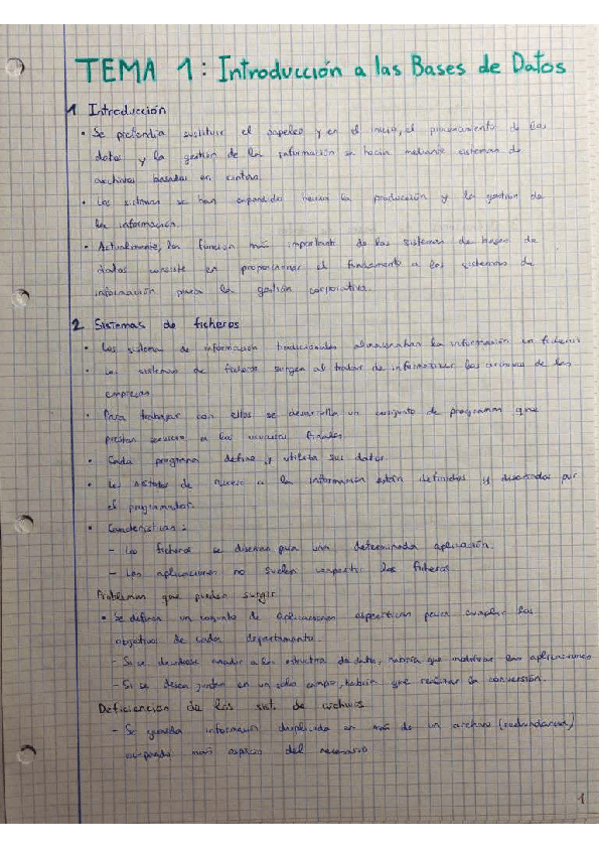 TEMA 1: Introducción a las Bases de Datos
1 Introducción
• Se pretendía sustituir el papeleo y en el inicio, el procesamiento de los
datos y la gestión de la información se hacía mediante sistemas de
archivos basados en cintas.
• Los sistemas se han expandido hacia la producción y la gestión de
la información.
• Actualmente, la función más importante de los sistemas de bases de
datos consiste en proporcionar el fundamento a los sistemas de
información para la gestión corporativa.
2 Sistemas de ficheros
• Los sistemas de información tradicionales almacenaban la información en ficheros
• Los sistemas de ficheros surgen al tratar de informatizar los archivos de las
empresas.
• Para trabajar con ellos se desarrolla un conjunto de programas que
prestan servicio a los usuarios finales
• Cada programa define y utiliza sus datos
• Los métodos de acceso a la información están definidos y diseñados por
el programador.
• Características:
- Los ficheros se diseñan para una determinada aplicación.
- Las aplicaciones no suelen compartir los ficheros
Problemas que pueden surgir
• Se definen un conjunto de aplicaciones específicas para cumplir los
objetivos de cada departamento.
- Si se desease añadir a la estructura de datos, habría que modificar las aplicaciones
- Si se desea juntar en un solo campo, habría que realizar la conversión.
Deficiencias de los sist. de archivos
- Se guarda información duplicada en más de un archivo (redundancia)
ocupando más espacio del necesario
1